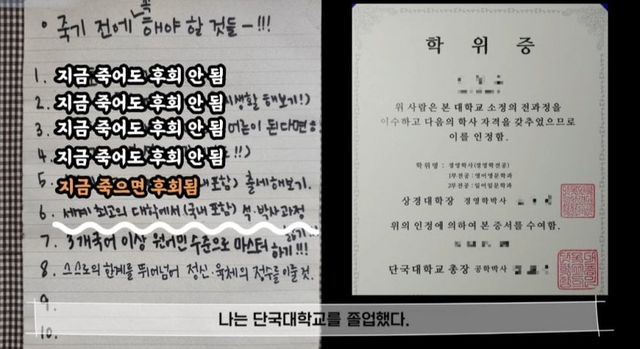 • 죽기 전에 꼭 해야 할 것들 - !!!
1. 지금 죽어도 후회 안 됨
2. 지금 죽어도 후회 안 됨 해보기!)
3. 지금 죽어도 후회 안 됨 어른이 된다면
4. 지금 죽어도 후회 안 됨 !!)
5. 지금 죽으면 후회됨 포함) 출세해보기.
6. 세계 최고의 대학에서 (국내 포함) 석·박사 과정
7. 3개국어 이상 원어민 수준으로 마스터하기!!!
8. 스스로의 한계를 뛰어넘어 정신·육체의 정수를 이룰 것.
9.
10.
학위증
위 사람은 본 대학교 소정의 전과정을
이수하고 다음의 학사 자격을 갖추었으므로
이를 인정함.
학위명 : 경영학사(경영학전공)
1부전공 : 영어영문학과
2부전공 : 일어일문학과
상경대학장 경영학박사
위의 인정에 의하여 본 증서를 수여함.
단국대학교 총장 공학박사
나는 단국대학교를 졸업했다.